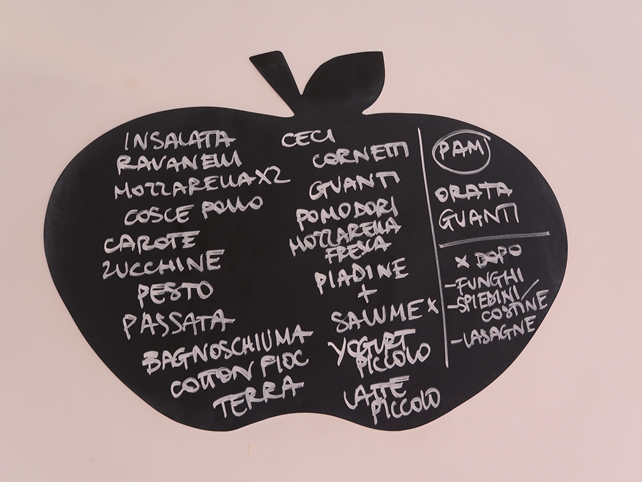 INSALATA
RAVANELLI
MOZZARELLA X2
COSCE POLLO
CAROTE
ZUCCHINE
PESTO
PASSATA
BAGNOSCHIUMA
COTTON FIOC
TERRA
CECI
CORNETTI
GUANTI
POMODORI
MOZZARELLA
FRESCA
PIADINE
+
SALUME X
YOGURT
PICCOLO
LATTE
PICCOLO
PAM
ORATA
GUANTI
X DOPO
-FUNGHI
-SPIEDINI/
COSTINE
-LASAGNE